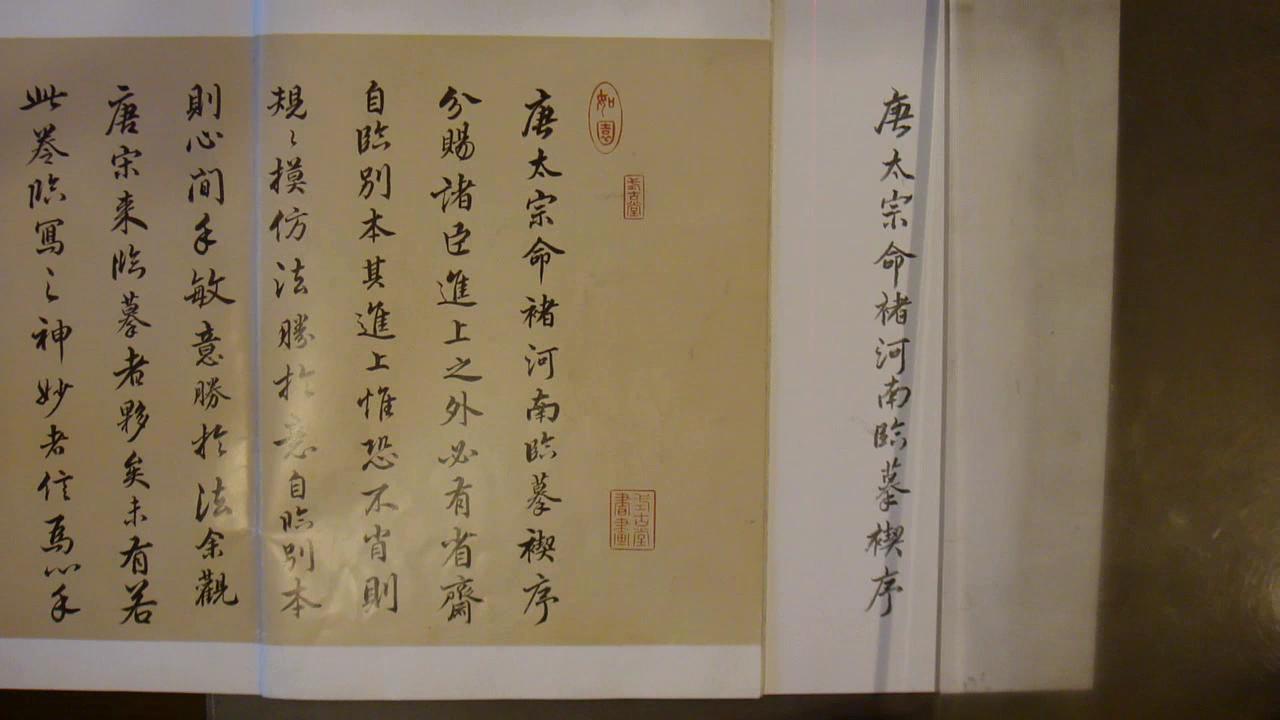 唐太宗命褚河南臨摹禊序
如意
考古堂
考古堂書畫
唐太宗命褚河南臨摹禊序
分賜諸臣進上之外必有省齋
自臨別本其進上惟恐不肖則
規〻摸仿法勝於意自臨別本
則心閒手敏意勝於法余觀
唐宋来臨摹者夥矣未有若
此卷臨寫之神妙者信為心手